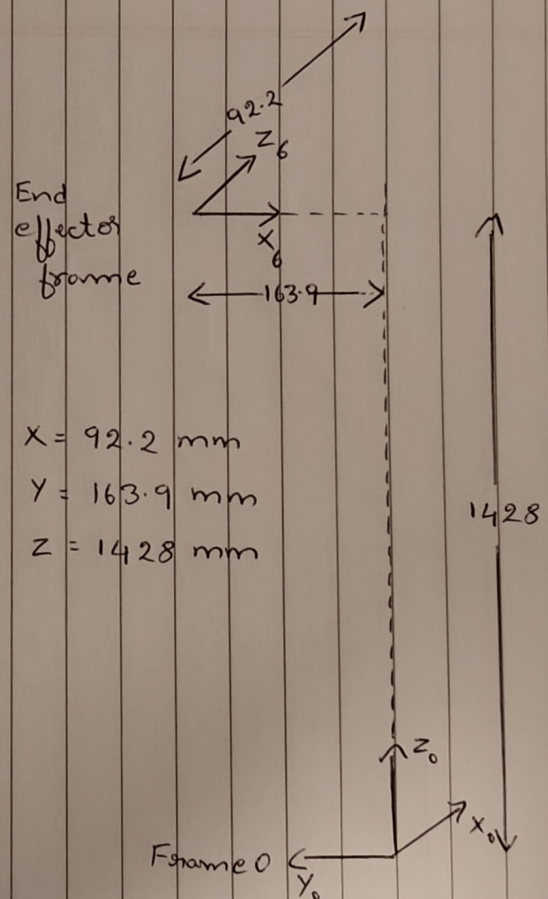 92.2
Z6
End
effector
frame
X6
163.9
X = 92.2 mm
Y = 163.9 mm
Z = 1428 mm
1428
Z0
X0
Frame 0
Y0